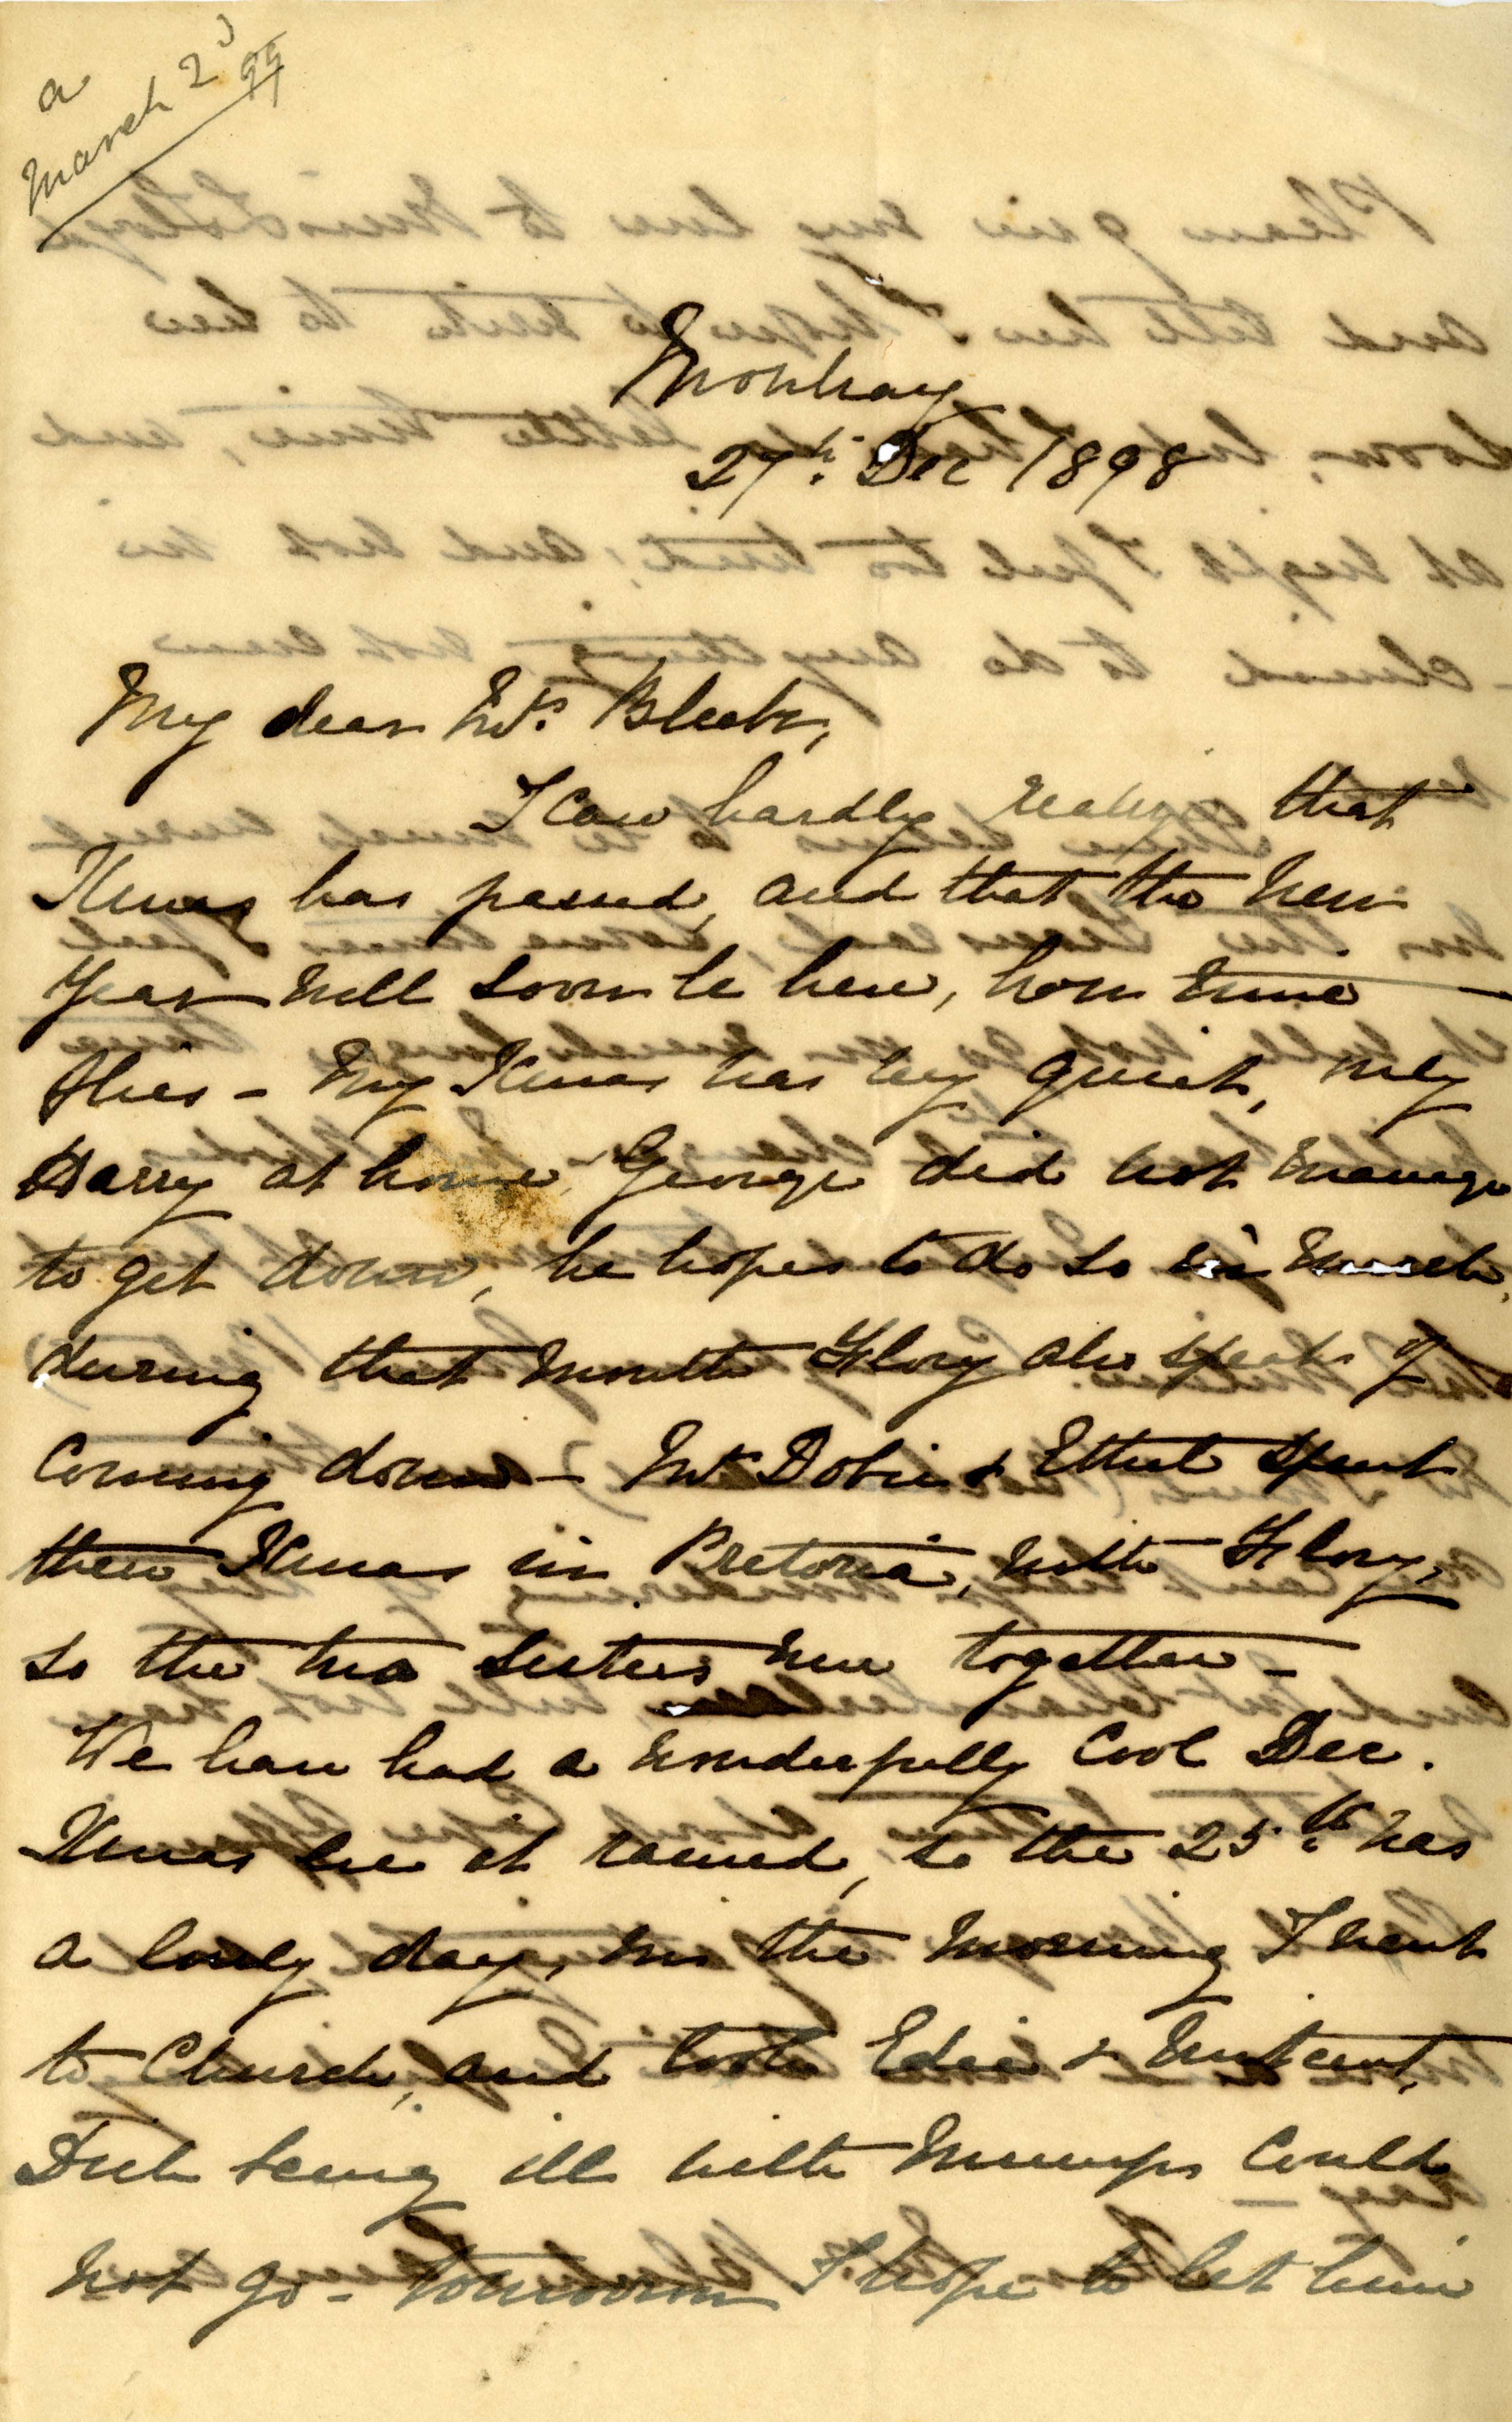 a
March 2 99
Mowbray
27th Dec 1898
My dear Mrs Bleek,
I can hardly realize that
Xmas has passed, and that the New
Year will soon be here, how time
flies – My Xmas was very quiet, only
Harry at home, George did not manage
to get down, he hopes to do so in March,
during that month Flory also speaks of
coming down – Mrs Dobie & Ethel spent
their Xmas in Pretoria, with Flory,
so the two sisters were together –
We have had a wonderfully cool Dec.
Xmas Eve it rained, so the 25th was
a lovely day, in the morning I went
to Church, and took Edie &
Dick being ill with Mumps could
not go – tomorrow I hope to let him